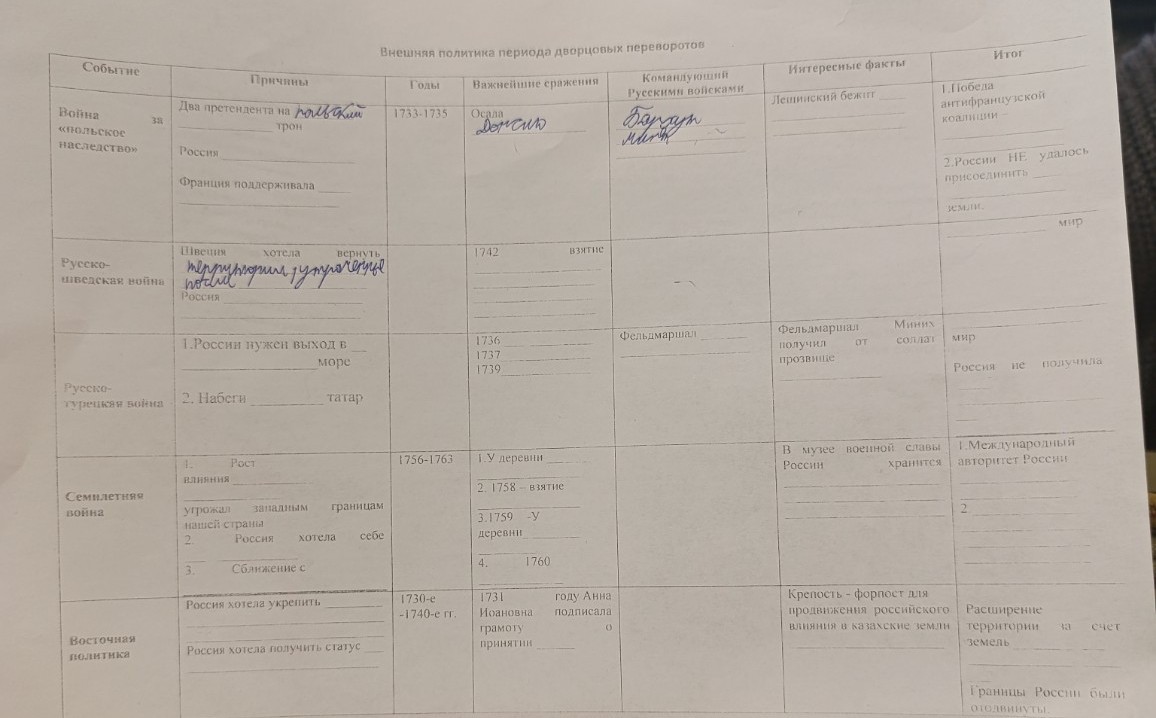 Внешняя политика периода дворцовых переворотов
Событие
Причины
Годы
Важнейшие сражения
Командующий
Русскими войсками
Интересные факты
Итог
Война за
«польское
наследство»
Два претендента на польский
трон
Россия
Франция поддерживала
1733-1735
Осада
Лешинский бежит
1.Победа
антифранцузской
коалиции –
2.России НЕ удалось
присоединить
земли.
Русско-
шведская война
Швеция хотела вернуть
территории, утраченные
после
Россия
1742 взятие
мир
Русско-
турецкая война
1.России нужен выход в
море
2. Набеги татар
1736
1737
1739
Фельдмаршал
Фельдмаршал Миних
получил от солдат
прозвище
мир
Россия не получила
Семилетняя
война
1. Рост
влияния
угрожал западным границам
нашей страны
2. Россия хотела себе
3. Сближение с
1756-1763
1.У деревни
2. 1758 – взятие
3.1759 -У
деревни
4. 1760
В музее военной славы
России хранится
1.Международный
авторитет России
2.
Восточная
политика
Россия хотела укрепить
Россия хотела получить статус
1730-е
-1740-е гг.
1731 году Анна
Иоановна подписала
грамоту о
принятии
Крепость - форпост для
продвижения российского
влияния в казахские земли
Расширение
территории за счет
земель
Границы России были
отодвинуты.